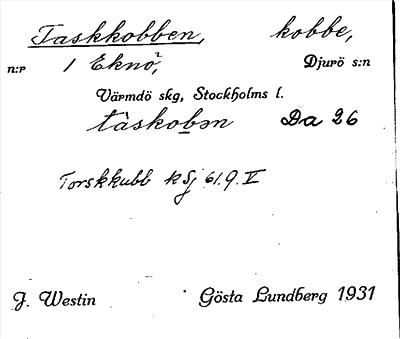 Taskkobben, kobbe,
n:r 1 Eknö, Djurö s:n
Värmdö skg, Stockholms l.
tàskobən Da 26
Torskkubb k Sj 61.9.V
J. Westin Gösta Lundberg 1931